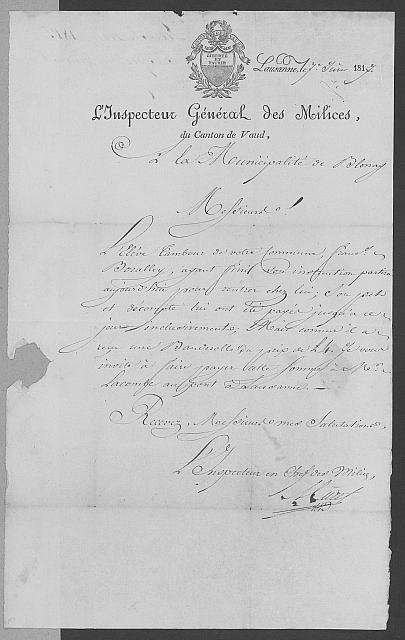 LIBERTÉ
ET
PATRIE
Lausanne, le 7e Juin 1817.
L'Inspecteur Général des Milices,
du Canton de Vaud,
A la Municipalité de Blonay
Messieurs!
L'Elève Tambour de votre Commune
ayant fini son instruction partira
aujourd'hui pour rentrer chez lui; Son pret
et décompte lui ont été payés jusqu'à ce
jour inclusivement; Mais comme il a
reçu une Banderolle du prix de je vous
invite à faire payer cette somme à Mr
au pont à Lausanne. —
Recevez, Messieurs mes Salutations,
L'Inspecteur en Chef des Milices,